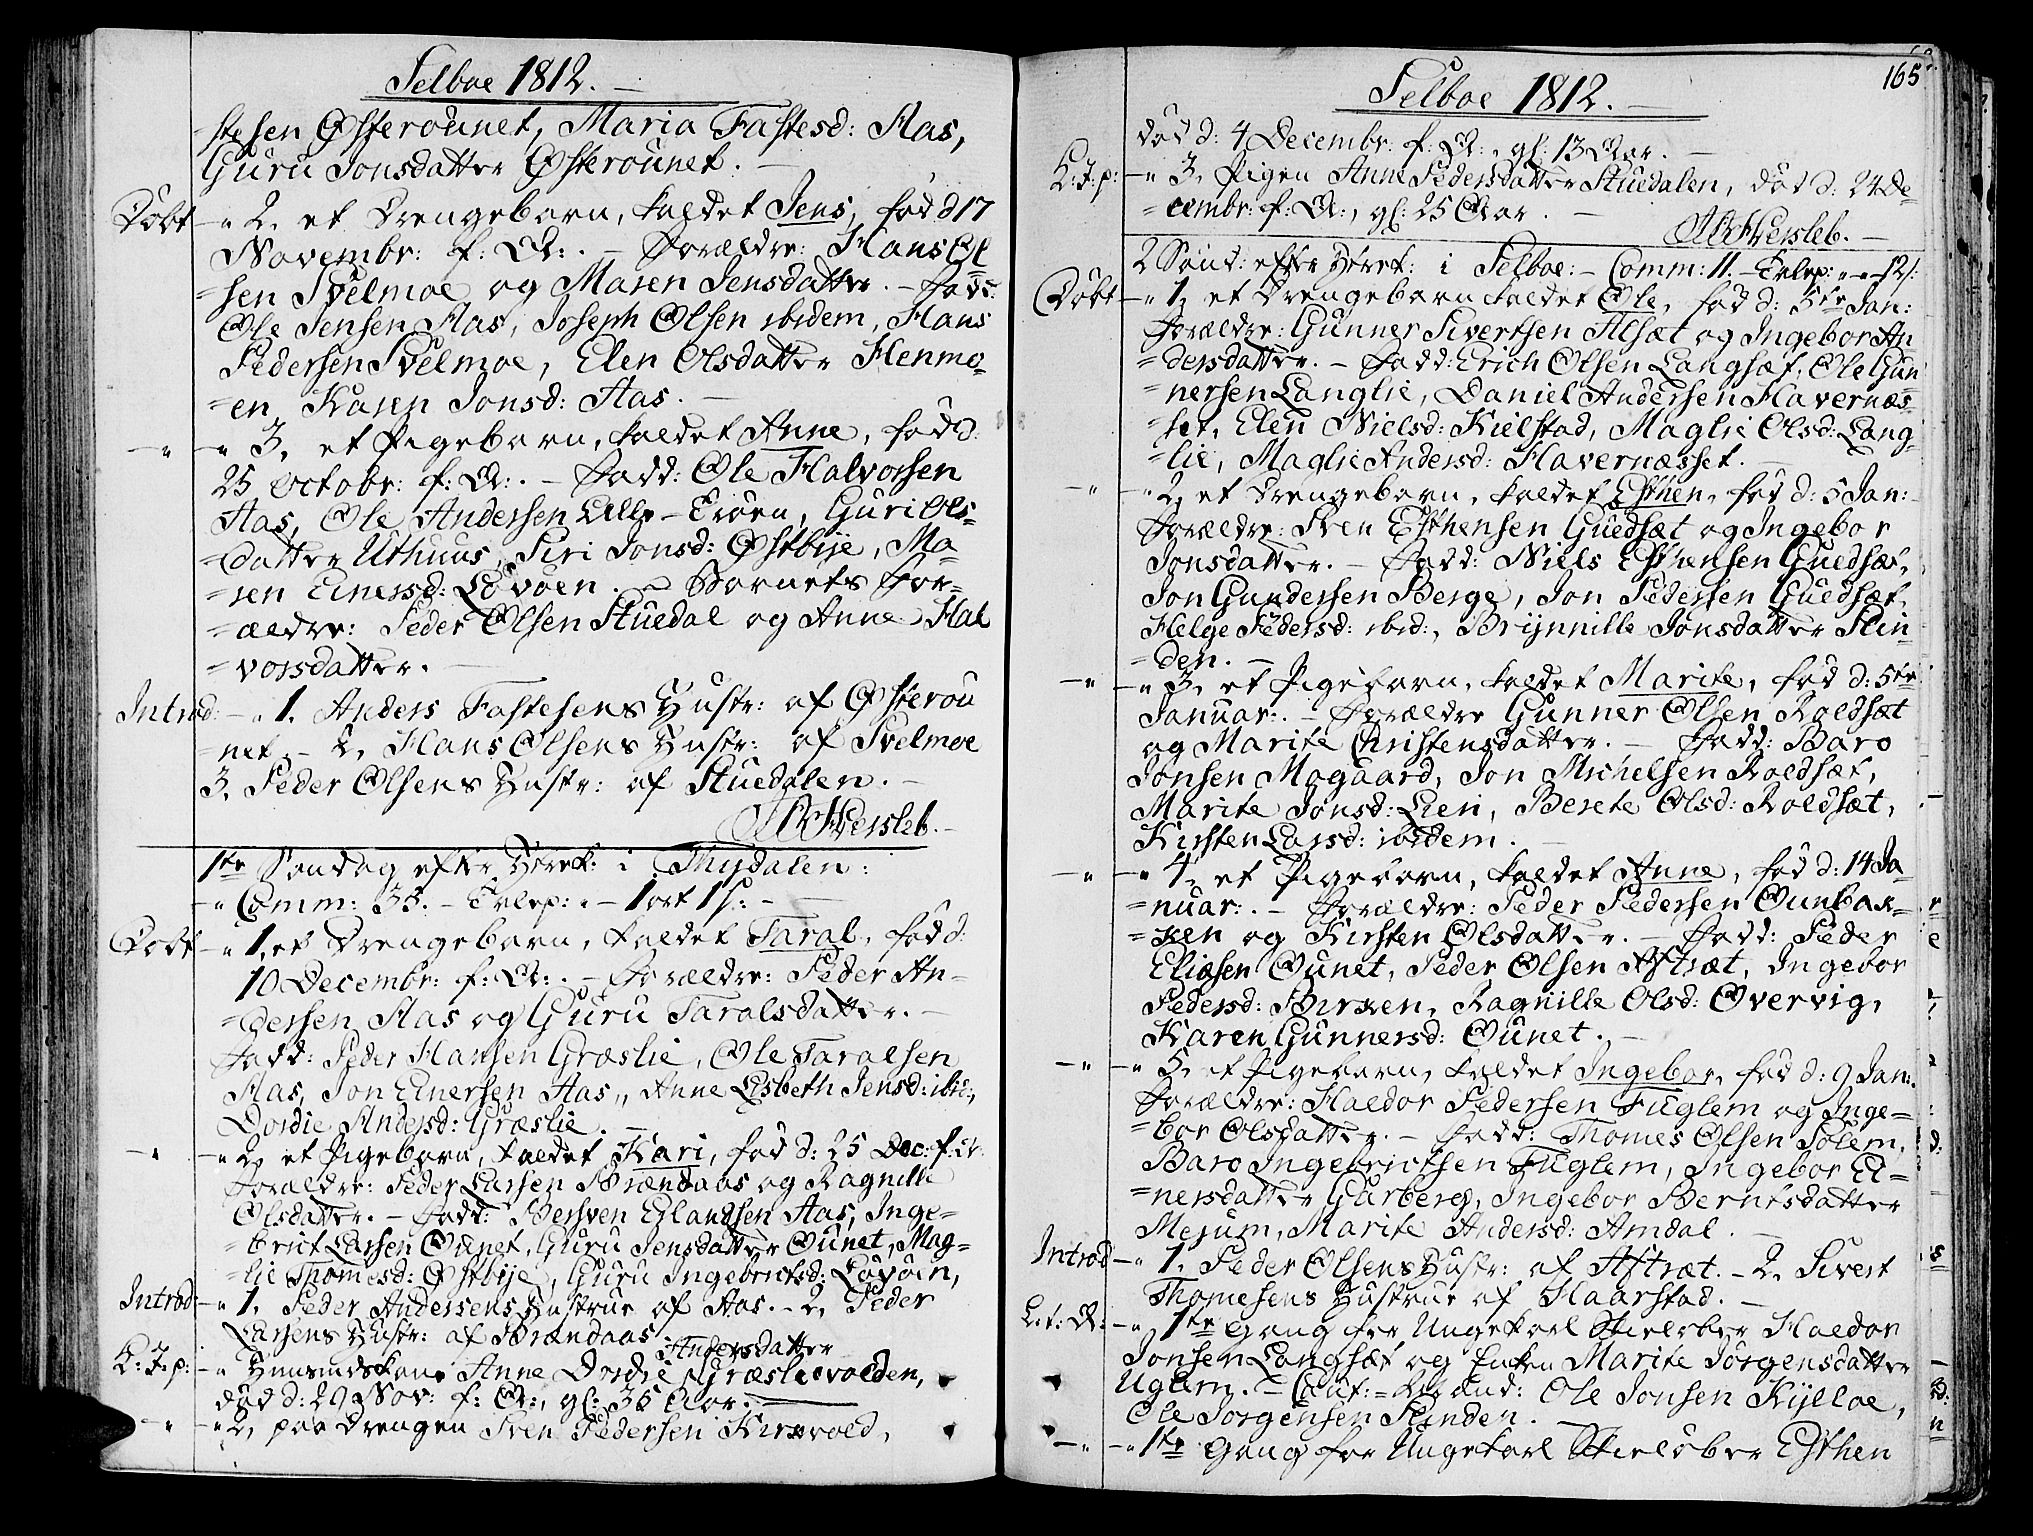 Selboe 1812.
stesen Østerounet, Maria Fastesd: Aas,
Guru Jonsdatter Østerounet.
Døbt - " 2, et Drengebarn, kaldet Jens, fød d 17
Novembr: f: A:. - Forældre: Hans Ol
=sen Svelmoe og Maren Jensdatter. - Fadd:
Ole Jensen Aas, Joseph Olsen ibidem, Hans
Pedersen Svelmoe, Elen Olsdatter Henmo-
=en, Karen Jonsd: Aas.
- " - " 3, et Pigebarn, kaldet Anne, fød d:
25 Octobr: f: A:. - Fadd: Ole Halvorsen
Aas, Ole Andersen Lille-Erøen, Guri Ols-
=datter Uthuus, Siri Jonsd: Østbye, Ma-
=ren Einersd: Løvøen. - Barnets For-
=ældre: Peder Olsen Stuedal og Anne Hal
=vorsdatter.
Introd: - " 1. Anders Fastesens Hustr: af Østerou
=net. - 2, Hans Olsens Hustr: af Svelmoe
3, Peder Olsens Hustr: af Stuedalen. -
Hersleb. -
1te Søndag efter Htrek: i Thydalen:
- " Comm: 33. - Tvlep: " - 1 ort 1 s: -
Døbt - " 1, et Drengebarn, kaldet Taral, fød d:
10 Decembr: f: A:. - Forældre: Peder An-
=dersen Aas og Guru Taralsdatter. -
Fadd: Peder Hansen Græslie, Ole Taralsen
Aas, Jon Einersen Aas, Anne Lisbeth Jensd: ibid:,
Dordie Andersd: Græslie. -
- " - " 2, et Pigebarn, kaldet Kari, fød d: 25 Dec: f: A:
Forældre: Peder Larsen Brændaas og Ragnille
Olsdatter. - Fadd: Bersven Erlandsen Aas, Inge-
=brict Larsen Ounet, Guru Jensdatter Ounet, Mag-
=lie Thomesd: Østbye, Guru Ingebrictsd: Løvøen,
Introd: - " 1. Peder Andersens Hustrue af Aas. - 2, Peder
Larsens Hustr: af Brændaas.
K: J. p: - " Huusmdskone Anne Dordie Andersdatter Græslievolden,
død d: 29 Nov: f: A:, gl: 35 Aar. -
- " - " 2, paa Drengen Sven Pedersen Kirkvold,
Selboe 1812. -
165
død d: 4 Decembr: f: A:, gl: 13 Aar. -
K: J. p: - " 3, Pigen Anne Pedersdatter Stuedalen, død d: 24 De
=cembr: f: A:, gl: 25 Aar. -
Hersleb. -
2 Sønd: efter Htrek: i Selboe: - Comm: 11. - Tvlep: " - " - 12 s:
Døbt - " 1, et Drengebarn kaldet Ole, fød d: 5te Jan:
Forældre: Gunner Sivertsen Alsæt og Ingebor An
=dersdatter. - Fadd: Erich Olsen Langsæt, Ole Gun
=nersen Langlie, Daniel Andersen Havernæs-
=set, Elen Nielsd: Kielstad, Maglie Olsd: Lang-
=lie, Maglie Andersd: Havernæsset. -
- " - " 2, et Drengebarn, kaldet Esthen, fød d: 5 Jan: -
Forældre: Sven Esthensen Guedsæt og Ingebor
Jonsdatter. - Fadd: Niels Esthensen Guedsæt,
Jon Gundersen Berge, Jon Pedersen Guedsæt,
Helge Pedersd: ibid:, Brynnille Jonsdatter Slin
=den. -
- " - " 3, et Pigebarn, kaldet Marite, fød d: 5te
Januar:. - Forældre Gunner Olsen Roldsæt
og Marite Christensdatter. - Fadd: Baro
Jonsen Mogaard, Jon Michelsen Roldsæt,
Marite Jonsd: Lien, Berete Olsd: Roldsæt,
Kirsten Larsd: ibidem. -
- " - " 4, et Pigebarn, kaldet Anne, fød d: 14 Ja
=nuar:. - Forældre: Peder Pedersen Ounbak-
=ken og Kirsten Olsdatter. - Fadd: Peder
Eliasen Ounet, Peder Olsen Aftræt, Ingebor
Pedersd: Birken, Ragnille Olsd: Overvig,
Karen Gunnersd: Ounet. -
- " - " 5, et Pigebarn, kaldet Ingebor, fød d: 9 Jan:.
Forældre: Haldor Pedersen Fuglem og Inge-
=bor Olsdatter. - Fadd: Thomes Olsen Solem,
Baro Ingebrictsen Fuglem, Ingebor Ei-
=nersdatter Garberg, Ingebor Berntsdatter
Mejum, Marite Andersd: Amdal. -
Introd - " 1. Peder Olsens Hustr: af Aftræt. - 2, Sivert
Thomesens Hustrue af Haarstad. -
L. t: A: - " 1te gang for Ungekarl Skieløber Haldor
Jonsen Langsæt og Enken Marite Jørgensdatter
Uglem. - Caut: = Ole Jonsen Kylloe,
Ole Jørgensen Slinden. -
- " - " 1te gang for Ungekarl Skieløber Esthen